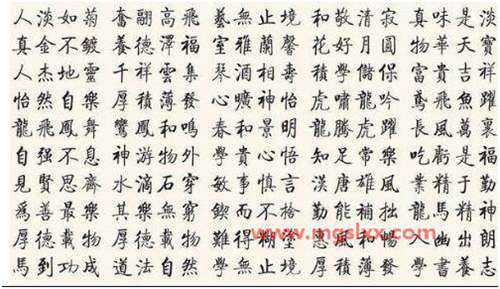 人淡如菊 奮翮高飛 藝無止境 和敬清寂 真味是淡
真金不鍍 養德澤福 室雅蘭馨 花好月圓 物華天寶
人杰地靈 千祥雲集 琴酒相壽 學儲保 富貴吉祥
怡然自樂 厚積薄發 心曠神怡 虎嘯龍吟 鳶飛魚躍
龍飛鳳舞 鸞鳳和鳴 春和景明 龍騰虎躍 長風萬裏
自强不息 神游物外 學貴心悟 知足常樂 吃虧是福
見賢思齊 水滴石穿 敏事慎言 漢唐雄風 業精于勤
爲善最樂 其樂無窮 鍥而不捨 勤能補拙 龍馬精神
厚德載物 厚德載物 難得糊塗 惠風和暢 人出朗
馬到功成 道法自然 學無止境 厚積薄發 學書養志
www.mgslxx.com